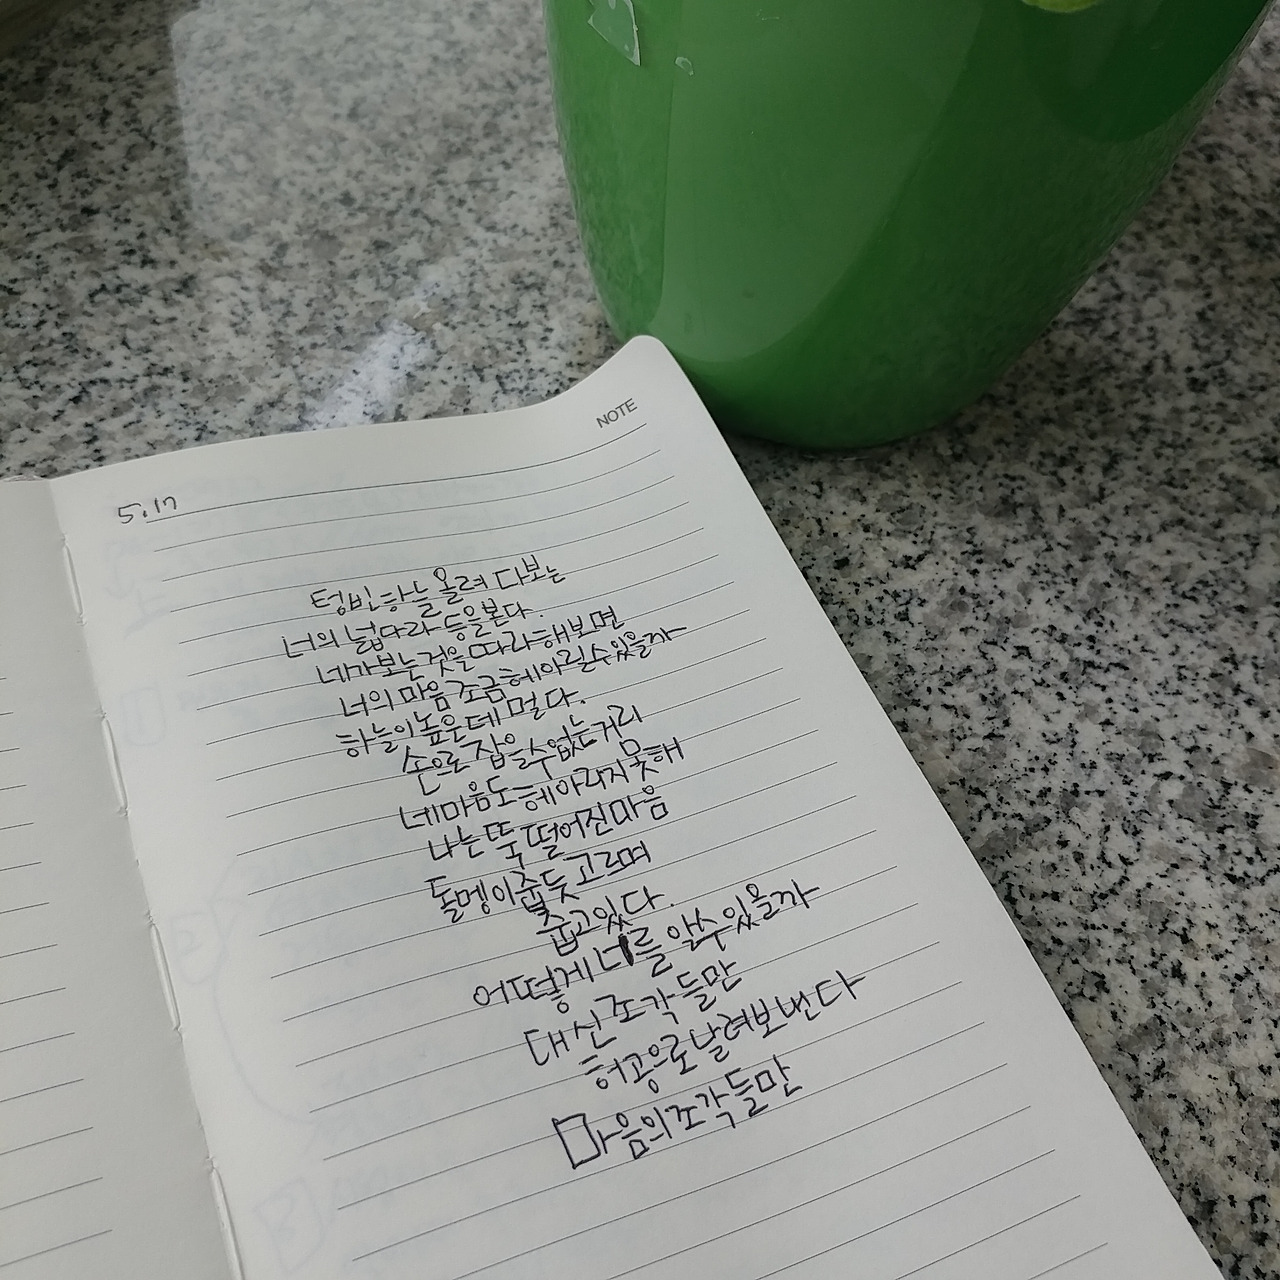 NOTE
5.17
텅빈하늘올려다보는
너의 넓다라 등을본다.
네가보는것을따라해보면
너의 마음 조금헤아릴수있을까
하늘이높은데 멀다.
손으로 잡을수없는거리
네마음도 헤아리지못해
나는 뚝 떨어진마음
돌멩이줍듯 고르며
줍고있다.
어떻게 너를 알수있을까
대신 조각들만
허공으로날려보낸다
마음의조각들만